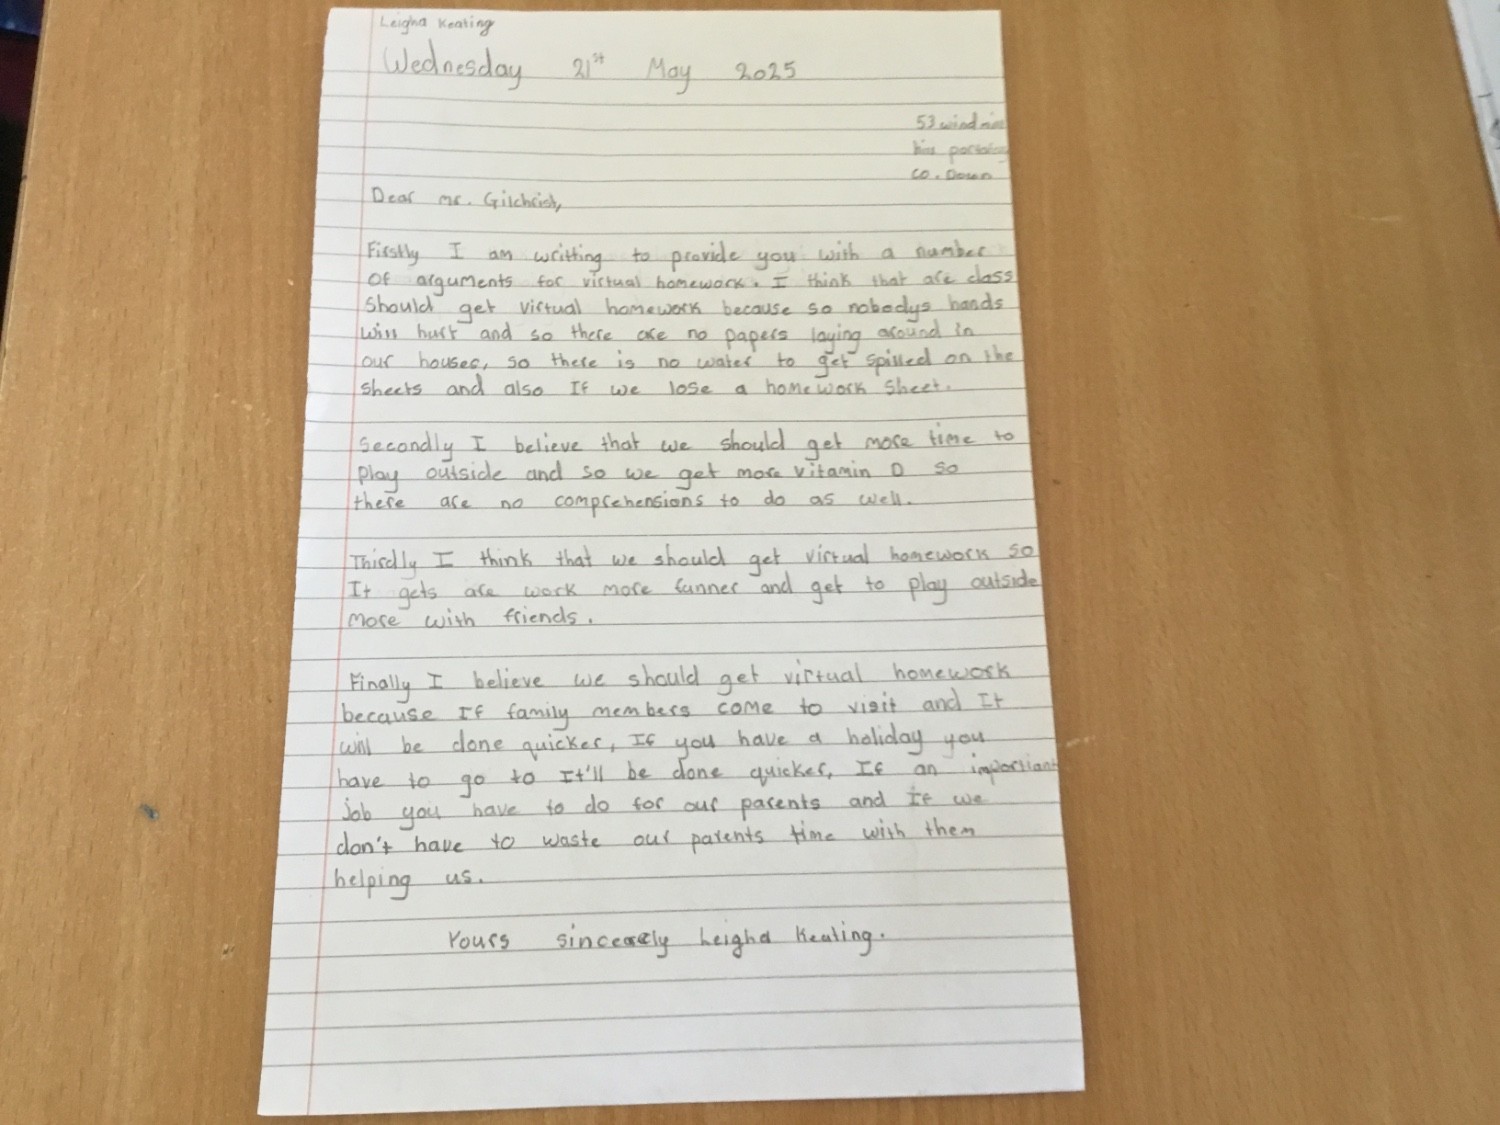 Leigha Keating
Wednesday 21st May 2025
53 windmill
hill
co. Down
Dear mr. Gilchrist,
Firstly I am writting to provide you with a number
Of arguments for virtual homework. I think that are class
Should get virtual homework because so nobodys hands
will hurt and so there are no papers laying around in
our houses, so there is no water to get spilled on the
sheets and also If we lose a homework sheet.
Secondly I believe that we should get more time to
play outside and so we get more vitamin D so
there are no comprehensions to do as well.
Thirdly I think that we should get virtual homework so
It gets are work more funner and get to play outside
more with friends.
Finally I believe we should get virtual homework
because If family members come to visit and It
will be done quicker, If you have a holiday you
have to go to It'll be done quicker, If an importiant
job you have to do for our parents and If we
don't have to waste our parents time with them
helping us.
Yours sincerely Leigha Keating.